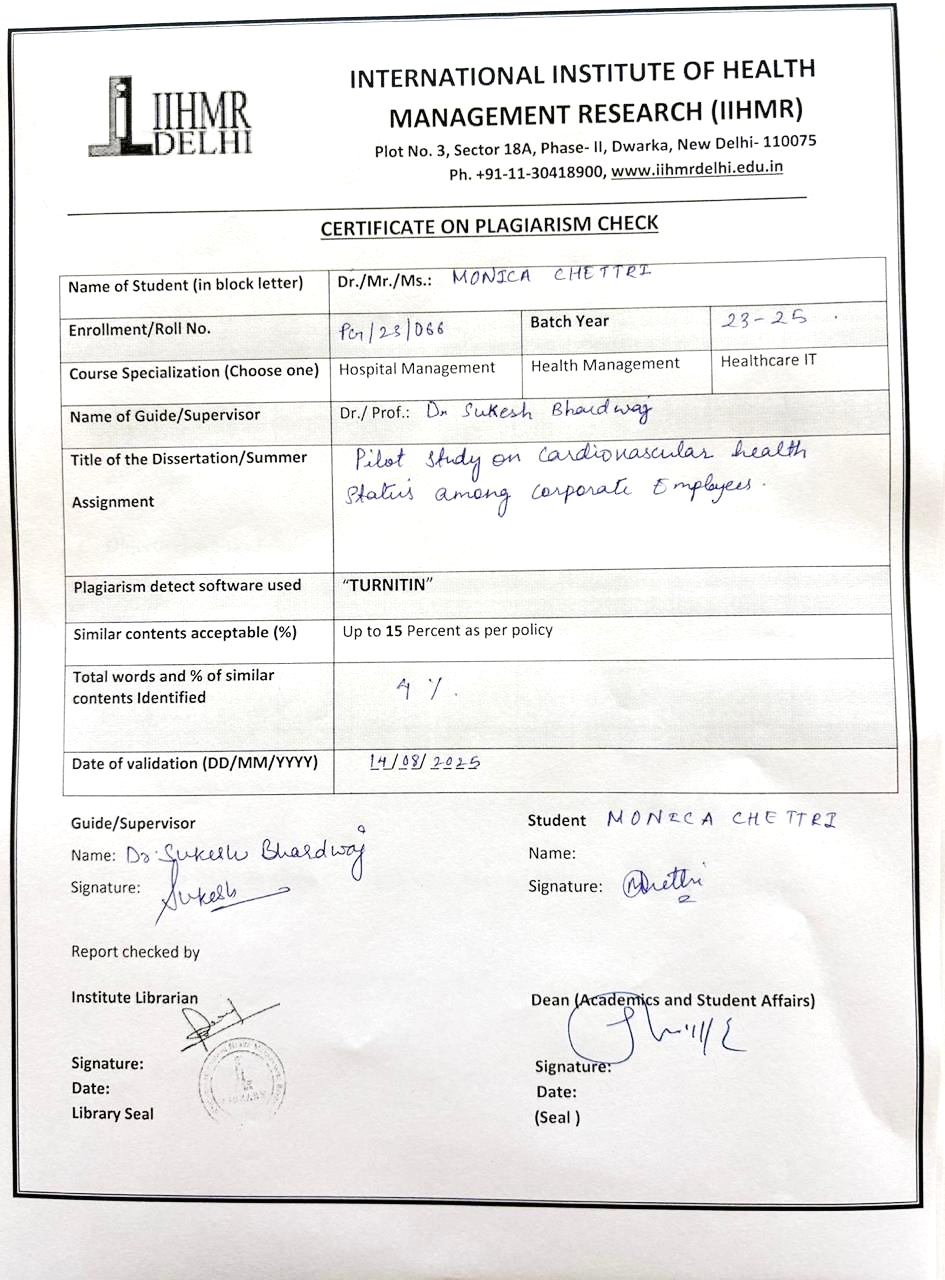 IIHMR
DELHI
INTERNATIONAL INSTITUTE OF HEALTH
MANAGEMENT RESEARCH (IIHMR)
Plot No. 3, Sector 18A, Phase- II, Dwarka, New Delhi- 110075
Ph. +91-11-30418900, www.iihmrdelhi.edu.in
CERTIFICATE ON PLAGIARISM CHECK
Name of Student (in block letter) Dr./Mr./Ms.: MONICA CHETTRI
Enrollment/Roll No. PG/23/066 Batch Year 23-25
Course Specialization (Choose one) Hospital Management Health Management Healthcare IT
Name of Guide/Supervisor Dr./ Prof.: Dr Sukesh Bhardwaj
Title of the Dissertation/Summer Pilot study on cardiovascular health
Assignment status among corporate Employees.
Plagiarism detect software used "TURNITIN"
Similar contents acceptable (%) Up to 15 Percent as per policy
Total words and % of similar
contents Identified %.
Date of validation (DD/MM/YYYY) 14/08/2025
Guide/Supervisor Student MONICA CHETTRI
Name: Dr. Sukesh Bhardwaj Name:
Signature: Sukesh Signature:
Report checked by
Institute Librarian Dean (Academics and Student Affairs)
Signature: Signature:
Date: Date:
Library Seal (Seal )